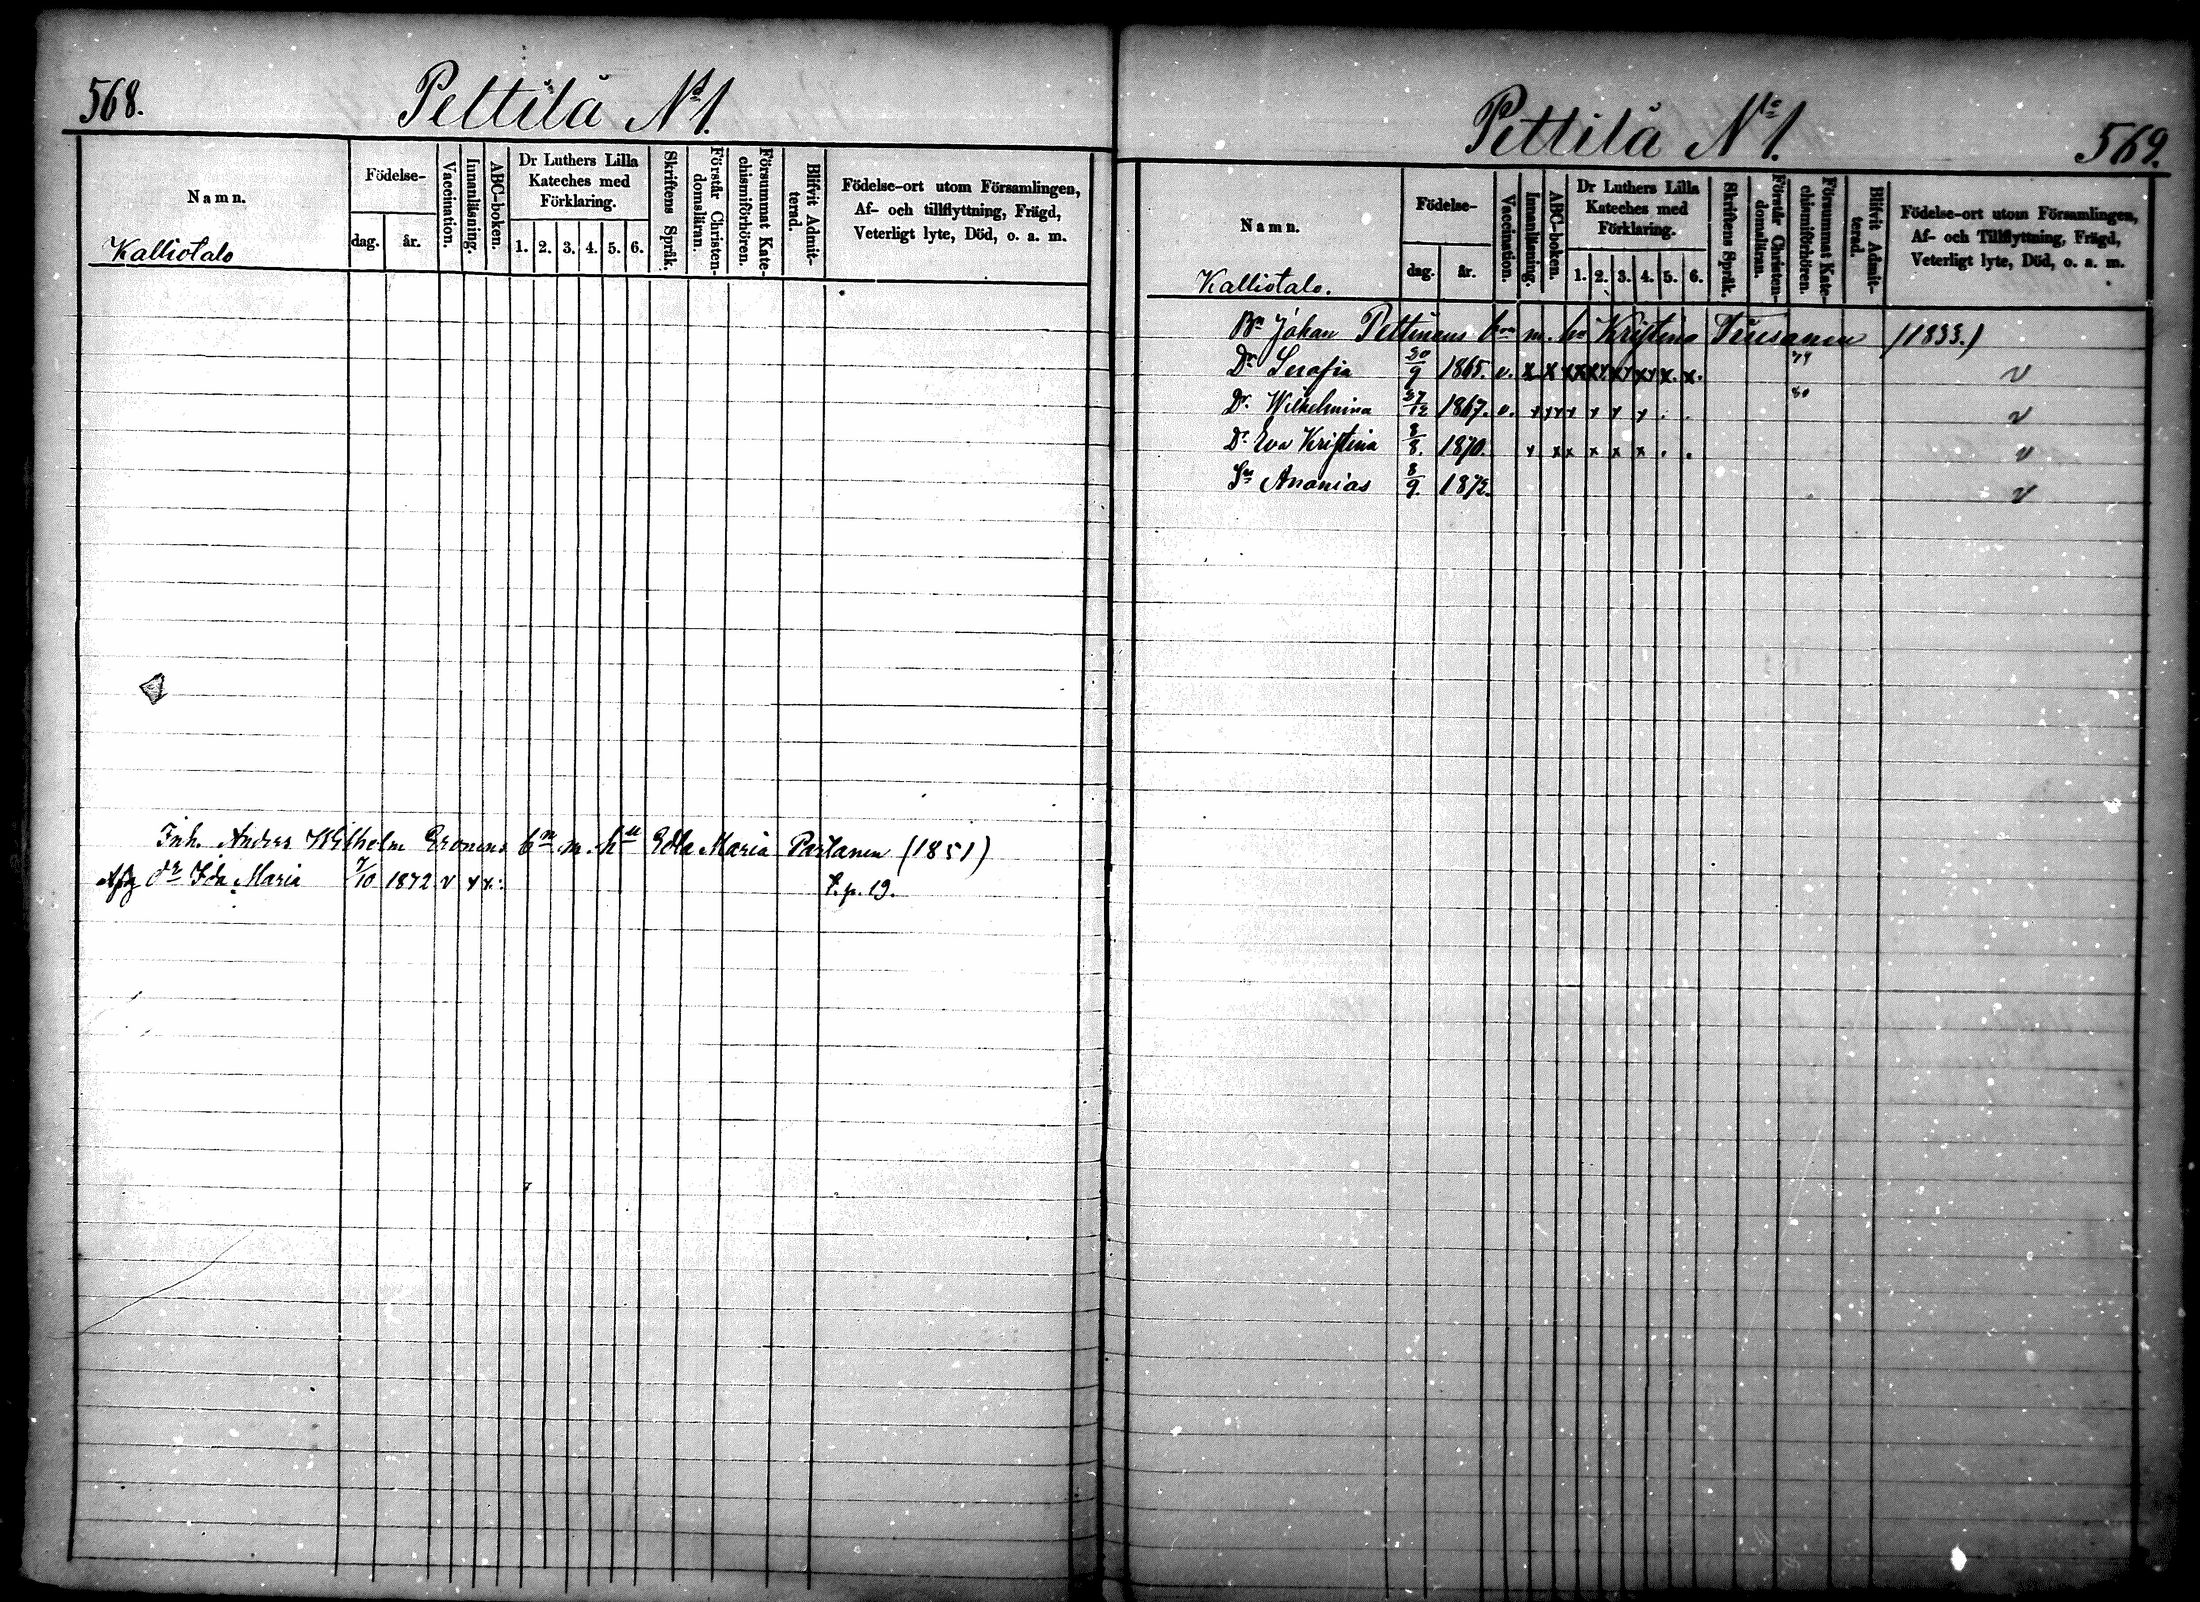 568.
Pettilä № 1.
Namn.
Födelse-
dag.
år.
Vaccination.
Innanläsning.
ABC-boken.
Dr Luthers Lilla
Kateches med
Förklaring.
1. 2. 3. 4. 5. 6.
Skriftens Språk.
Förstår Christen-
domsläran.
Försummat Kate-
chismiförhören.
Blifvit Admit-
terad.
Födelse-ort utom Församlingen,
Af- och tillflyttning, Frägd,
Veterligt lyte, Död, o. a. m.
Kalliotalo
Inh. Anders Wilhelm Eronens bn m. hu Edla Maria Partanen (1851)
Afg dr Ida Maria 7/10 1872 v x x. t. p. 19.
Pettilä № 1.
569.
Namn.
Födelse-
dag.
år.
Vaccination.
Innanläsning.
ABC-boken.
Dr Luthers Lilla
Kateches med
Förklaring.
1. 2. 3. 4. 5. 6.
Skriftens Språk.
Förstår Christen-
domsläran.
Försummat Kate-
chismiförhören.
Blifvit Admit-
terad.
Födelse-ort utom Församlingen,
Af- och Tillflyttning, Frägd,
Veterligt lyte, Död, o. a. m.
Kalliotalo.
Bn Johan Pettinens bn m. hu Kristina (1833.)
Dr Serafia 30/9 1865. v. x x x x x x x x x x. x. 79 v
Dr. Wilhelmina 27/12 1867. v. x x x x x x x . . 80 v
Dr. Eva Kristina 8/8. 1870. x x x x x x . . v
Sn Ananias 8/9. 1872. v